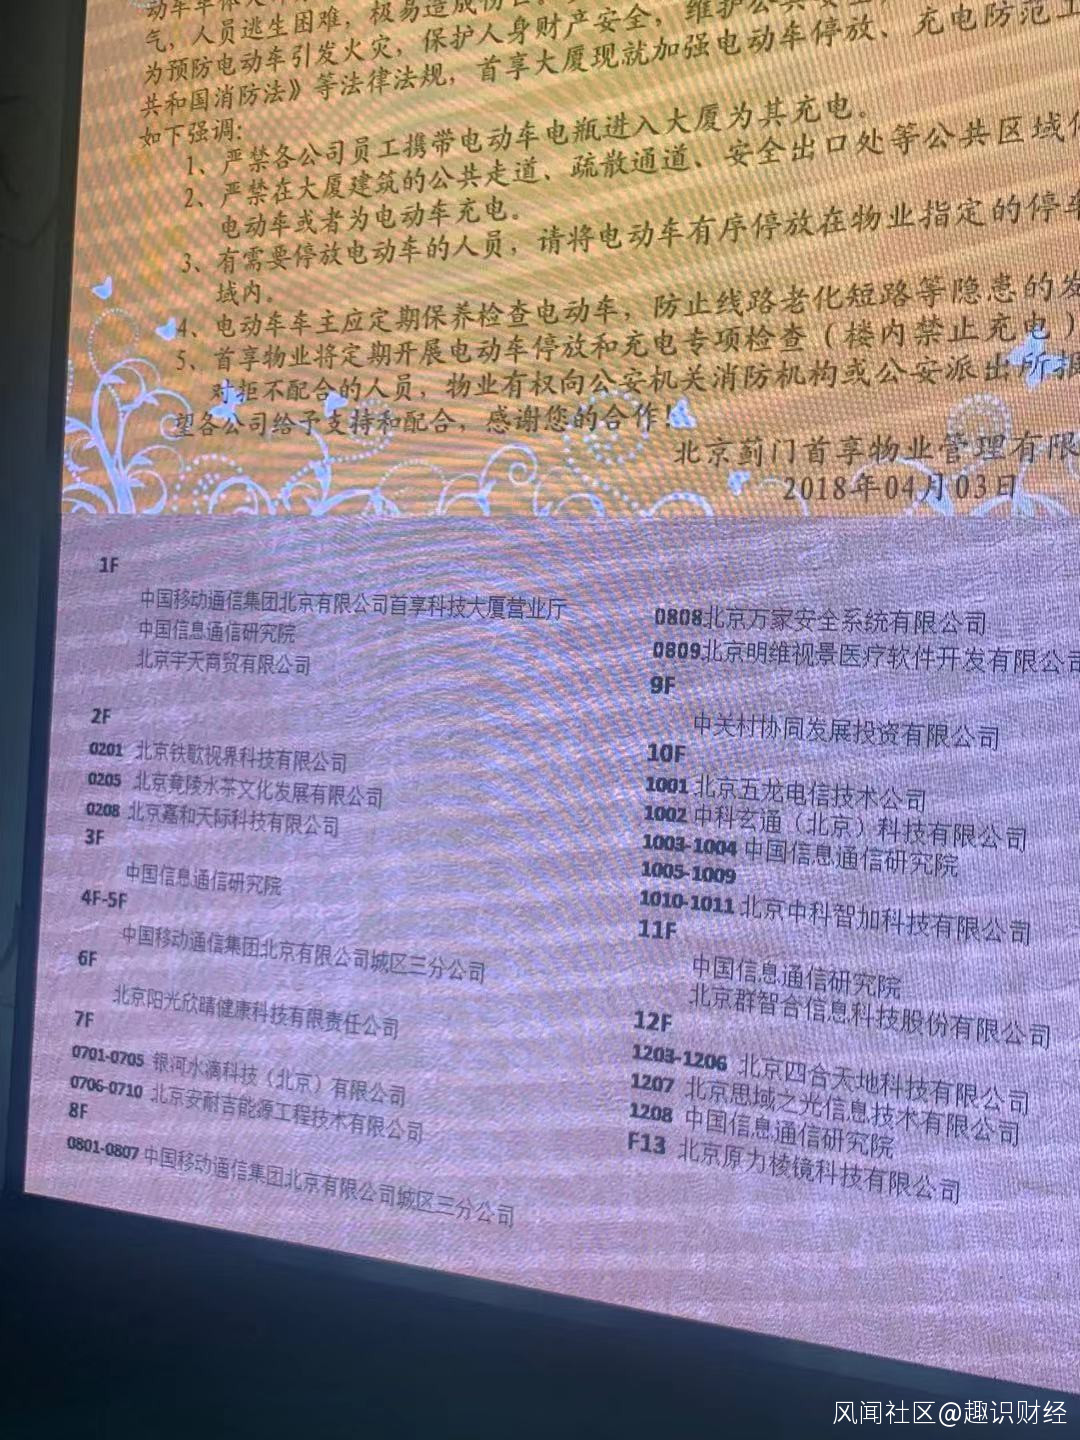 动车车体
气，人员逃生困难，极易造成伤亡。
为预防电动车引发火灾，保护人身财产安全，维护公共安全，
共和国消防法》等法律法规，首享大厦现就加强电动车停放、充电防范工
如下强调：
1、严禁各公司员工携带电动车电瓶进入大厦为其充电。
2、严禁在大厦建筑的公共走道、疏散通道、安全出口处等公共区域停
电动车或者为电动车充电。
3、有需要停放电动车的人员，请将电动车有序停放在物业指定的停车
域内。
4、电动车车主应定期保养检查电动车，防止线路老化短路等隐患的发
5、首享物业将定期开展电动车停放和充电专项检查（楼内禁止充电）
对拒不配合的人员，物业有权向公安机关消防机构或公安派出所报
望各公司给予支持和配合，感谢您的合作！
北京蓟门首享物业管理有限
2018年04月03日
1F
中国移动通信集团北京有限公司首享科技大厦营业厅
中国信息通信研究院
北京宇天商贸有限公司
2F
0201 北京铁歌视界科技有限公司
0205 北京竟陵水茶文化发展有限公司
0208 北京嘉和天际科技有限公司
3F
中国信息通信研究院
4F-5F
中国移动通信集团北京有限公司城区三分公司
6F
北京阳光欣晴健康科技有限责任公司
7F
0701-0705 银河水滴科技（北京）有限公司
0706-0710 北京安耐吉能源工程技术有限公司
8F
0801-0807 中国移动通信集团北京有限公司城区三分公司
0808北京万家安全系统有限公司
0809北京明维视景医疗软件开发有限公司
9F
中关村协同发展投资有限公司
10F
1001 北京五龙电信技术公司
1002 中科玄通（北京）科技有限公司
1003-1004 中国信息通信研究院
1005-1009
1010-1011 北京中科智加科技有限公司
11F
中国信息通信研究院
北京群智合信息科技股份有限公司
12F
1203-1206 北京四合天地科技有限公司
1207 北京思域之光信息技术有限公司
1208 中国信息通信研究院
F13 北京原力棱镜科技有限公司
风闻社区@趣识财经